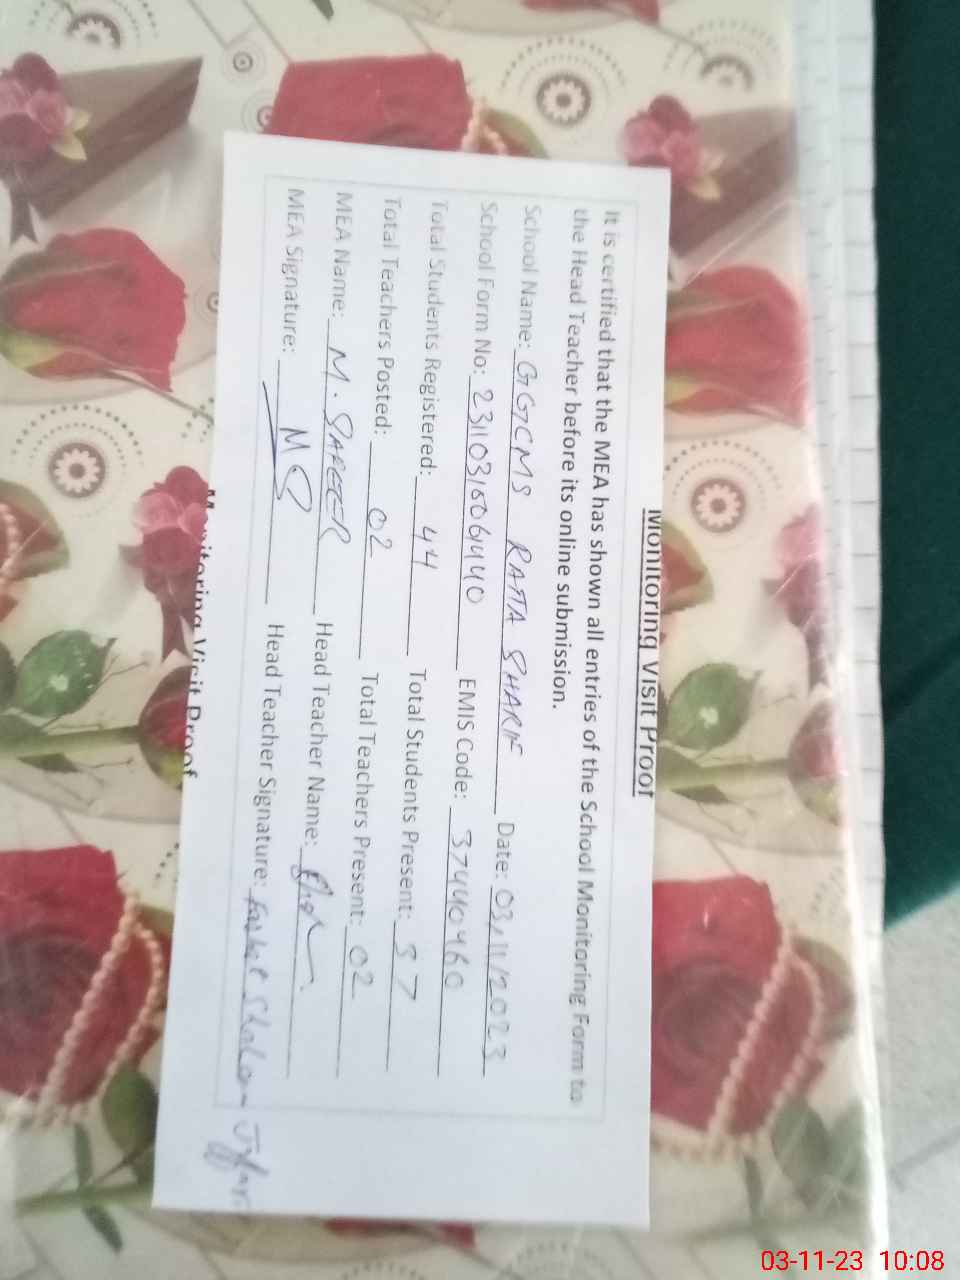 Monitoring Visit Proof
It is certified that the MEA has shown all entries of the School Monitoring Form to
the Head Teacher before its online submission.
School Name: GGCMS RATTA SHARIF Date: 03/11/2023
School Form No: 231103/606440 EMIS Code: 37440460
Total Students Registered: 44 Total Students Present: 37
Total Teachers Posted: 02 Total Teachers Present: 02
MEA Name: M. SAFEER Head Teacher Name:
MEA Signature: MS Head Teacher Signature:
Monitoring Visit Proof
03-11-23 10:08